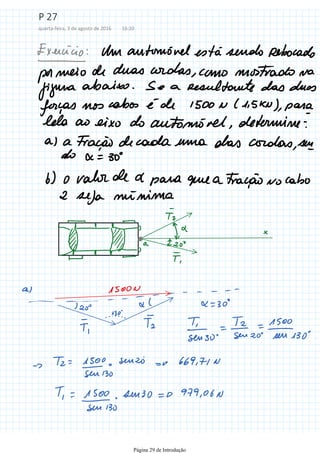 P 27
quarta-feira, 3 de agosto de 2016 16:20
Exercício: Um automóvel está sendo rebocado
por meio de duas cordas, como mostrado na
figura abaixo. Se a resultante das duas
forças nos cabos é de 1500 N (1,5KN), para
lela ao eixo do automóvel, determine:
a) a Tração de cada uma das cordas, sen
do α = 30°
b) o valor de α para que a Tração no cabo
2 seja mínima
T₂
α
x
a
20°
T₁
a)
1500 N
20°
α
α=30°
130°
T₁
T₂
T₁ / Sen 30° = T₂ / Sen 20° = 1500 / sen 130°
→ T₂ = 1500 / Sen 130 . sen 20 => 669,71 N
T₁ = 1500 / Sen 130 . sen 30 => 979,06 N
Página 29 de Introdução